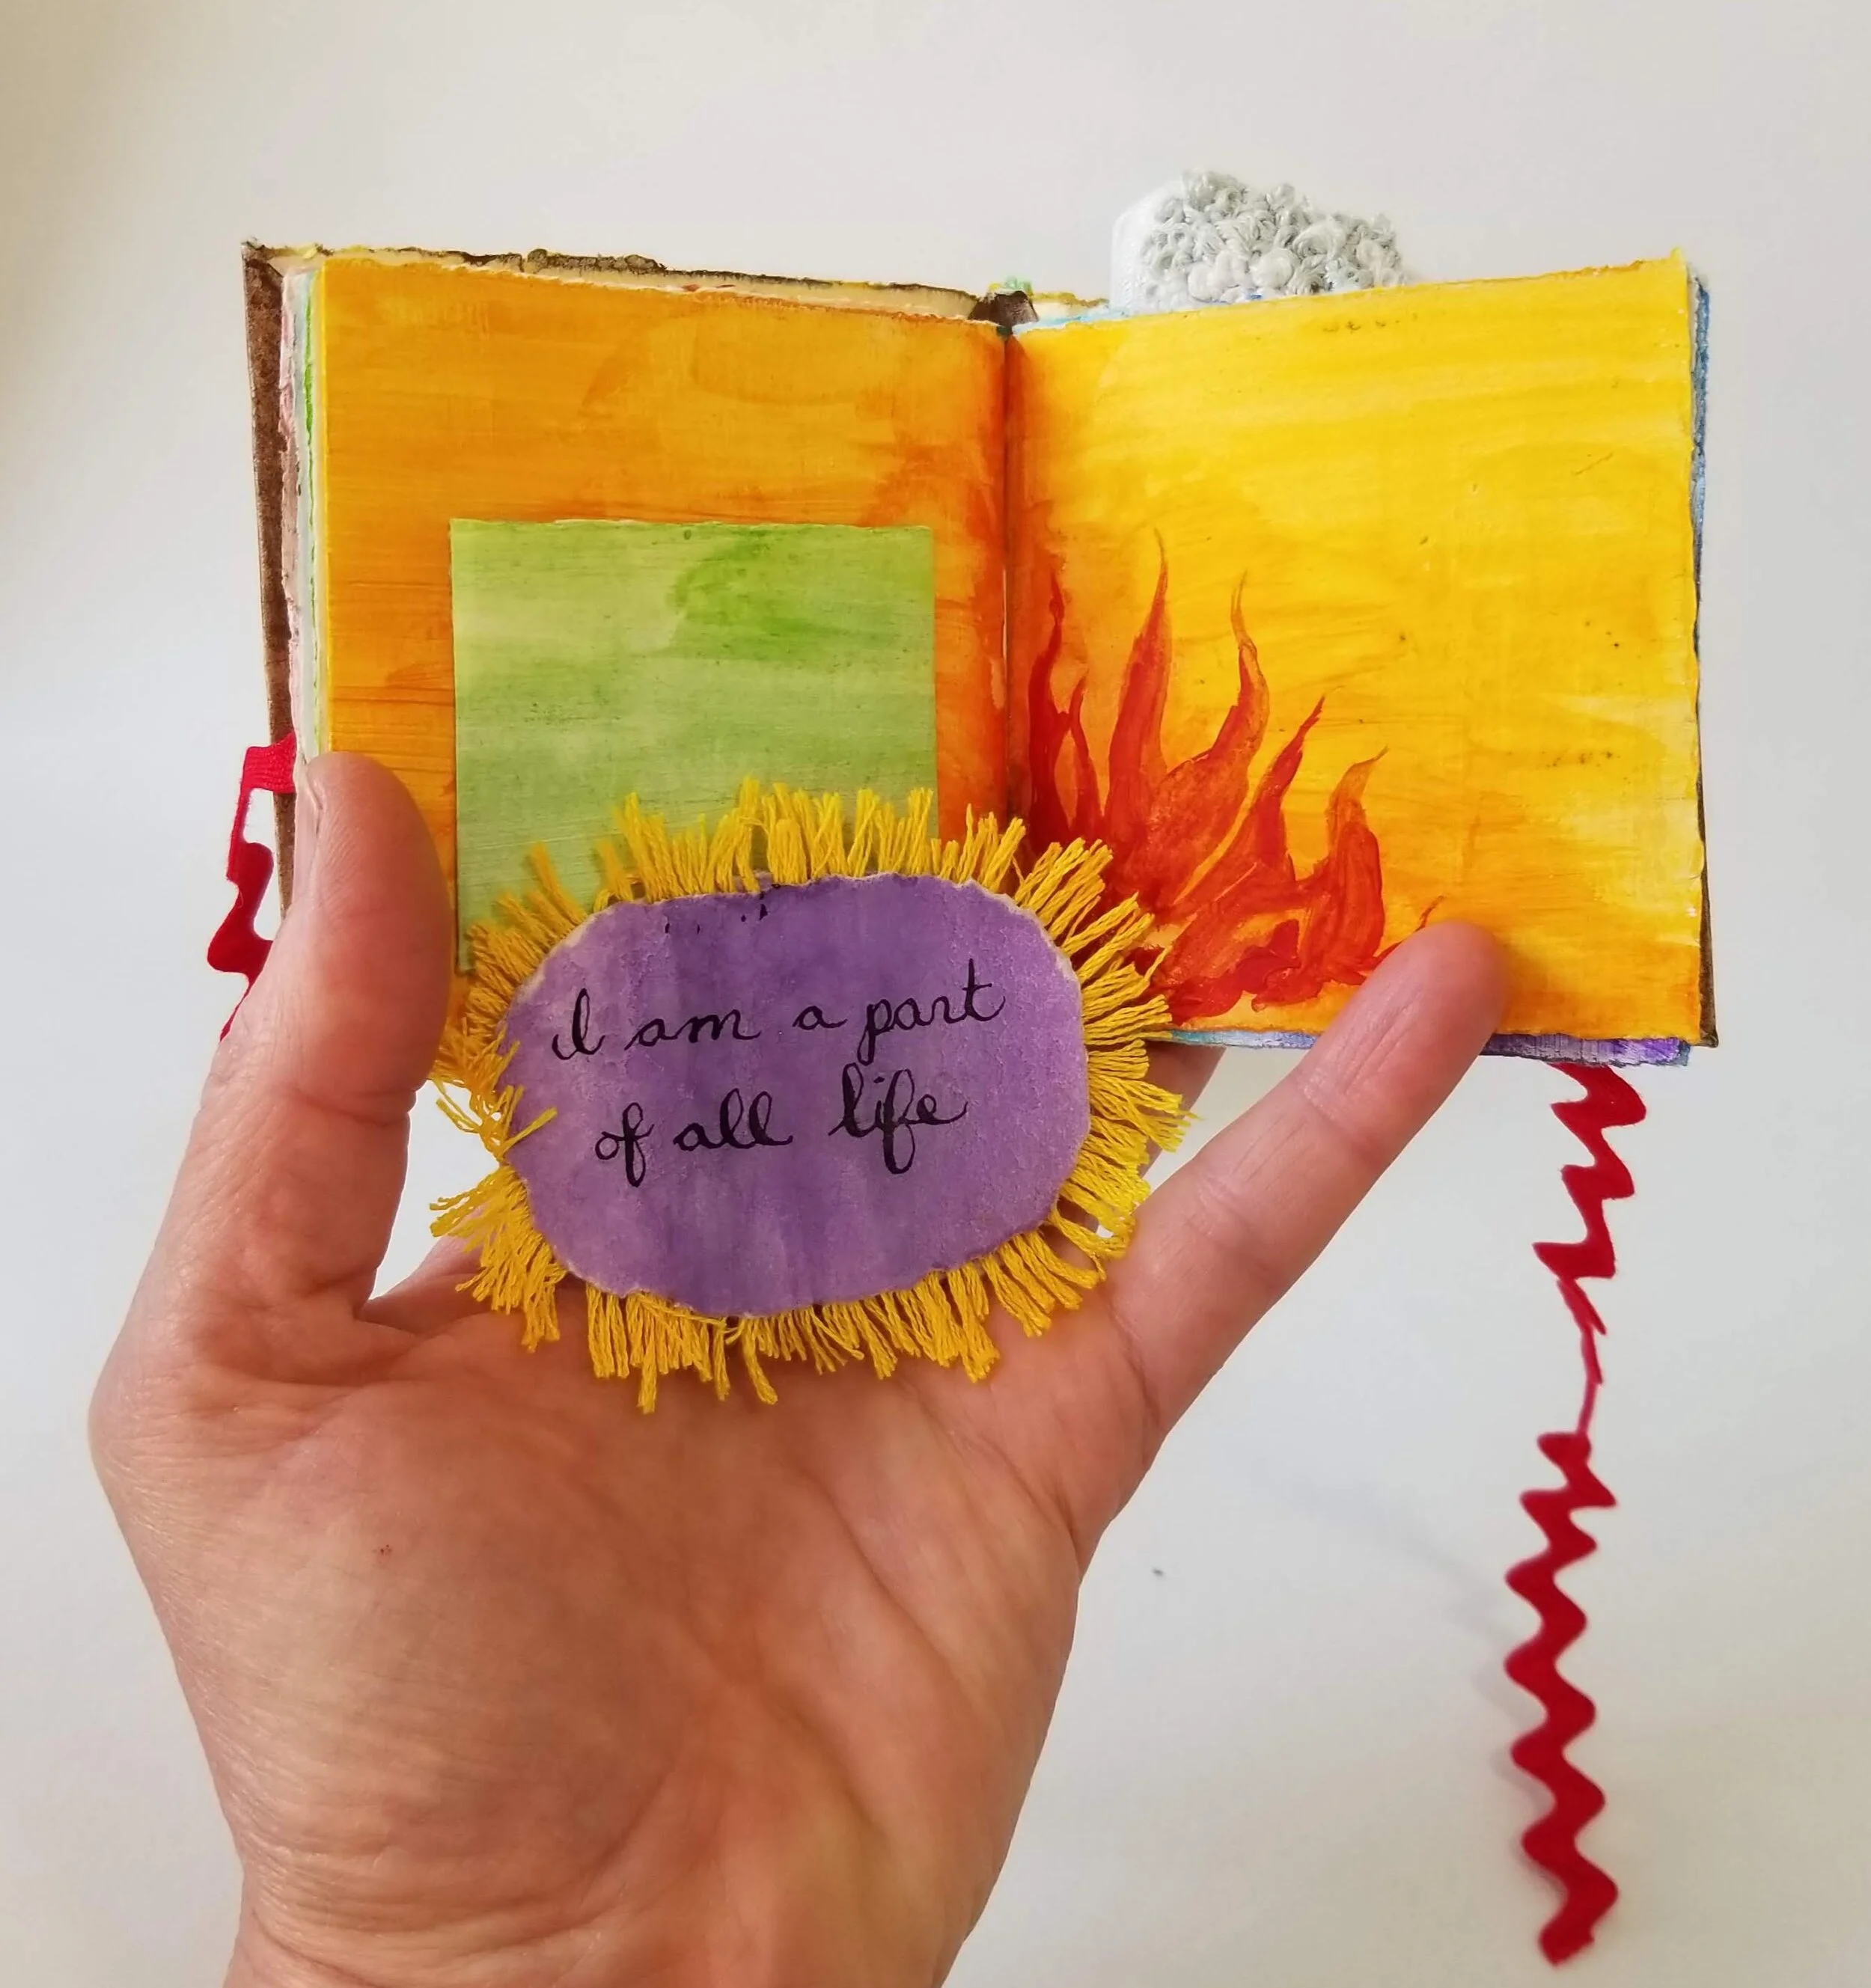 I am a part
of all life